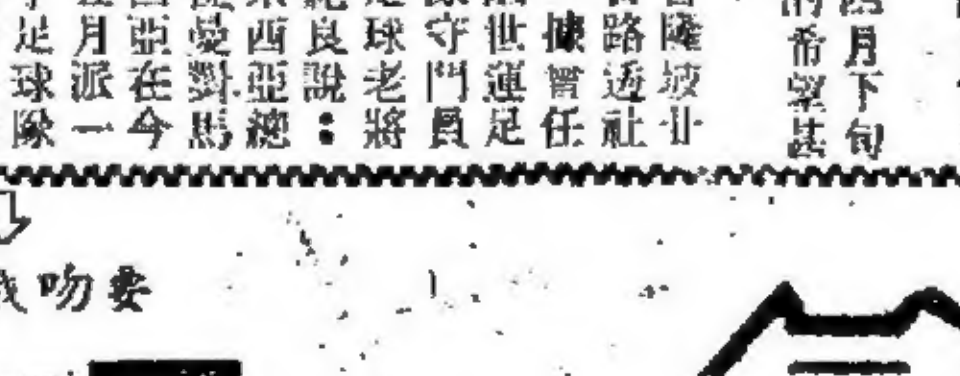 月下旬
的希望甚
隆坡廿
路透社
據曾任
世運足
守門員
球老將
良說：
西亞總
對馬
亞在今
月派一
足球隊
吻